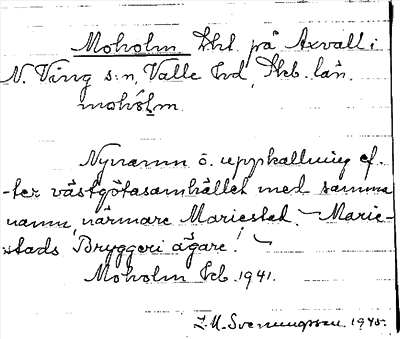 Moholm. Lht. på Axvall i
N. Ving s:n, Valle hd, Skb. län.
mohólm.
Nynamn o. uppkallning ef-
-ter västgötasamhället med samma
namn, närmare Mariestad. – Marie-
stads Bryggeri ägare!
Moholm Jcb. 1941.
L. M. Svenungsson 1945.